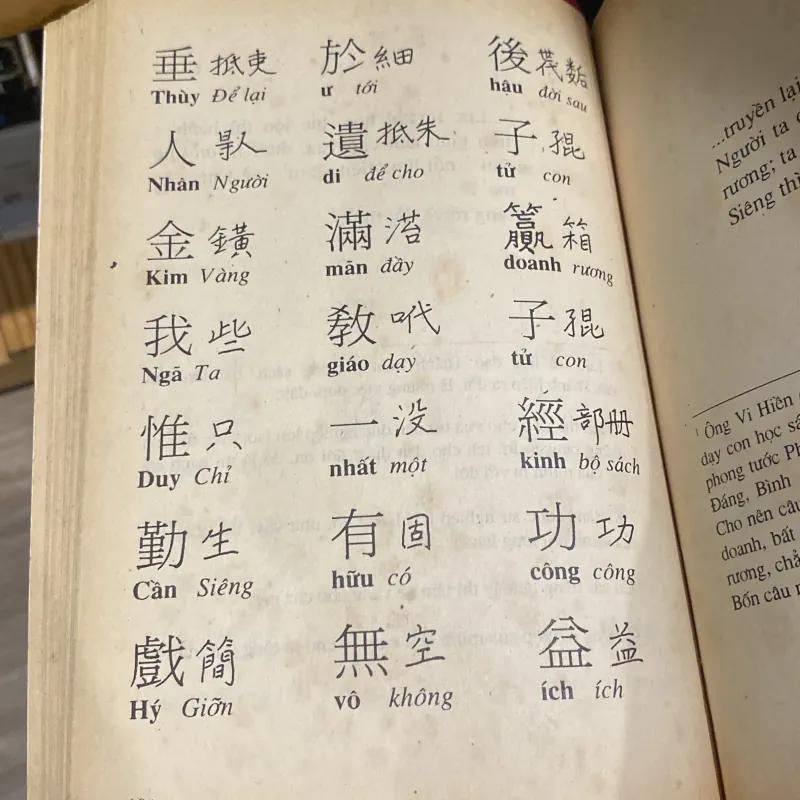 垂 抵吏 於 細 後 𦰟𡢐
Thùy Để lại ư tới hậu đời sau
人 𠊛 遺 抵朱 子 𡥵
Nhân Người di để cho tử con
金 鐄 滿 溚 籯 箱
Kim Vàng mãn đầy doanh rương
我 些 教 𠰺 子 𡥵
Ngã Ta giáo dạy tử con
惟 只 一 没 經 部冊
Duy Chỉ nhất một kinh bộ sách
勤 生 有 固 功 功
Cần Siêng hữu có công công
戲 簡 無 空 益 益
Hý Giỡn vô không ích ích
...truyền lại
Người ta
rương; ta
Siêng thì
¹ Ông Vi Hiền
dạy con học
phong tước
Đáng, Bình
Cho nên câu
doanh, bất
rương,
Bốn câu